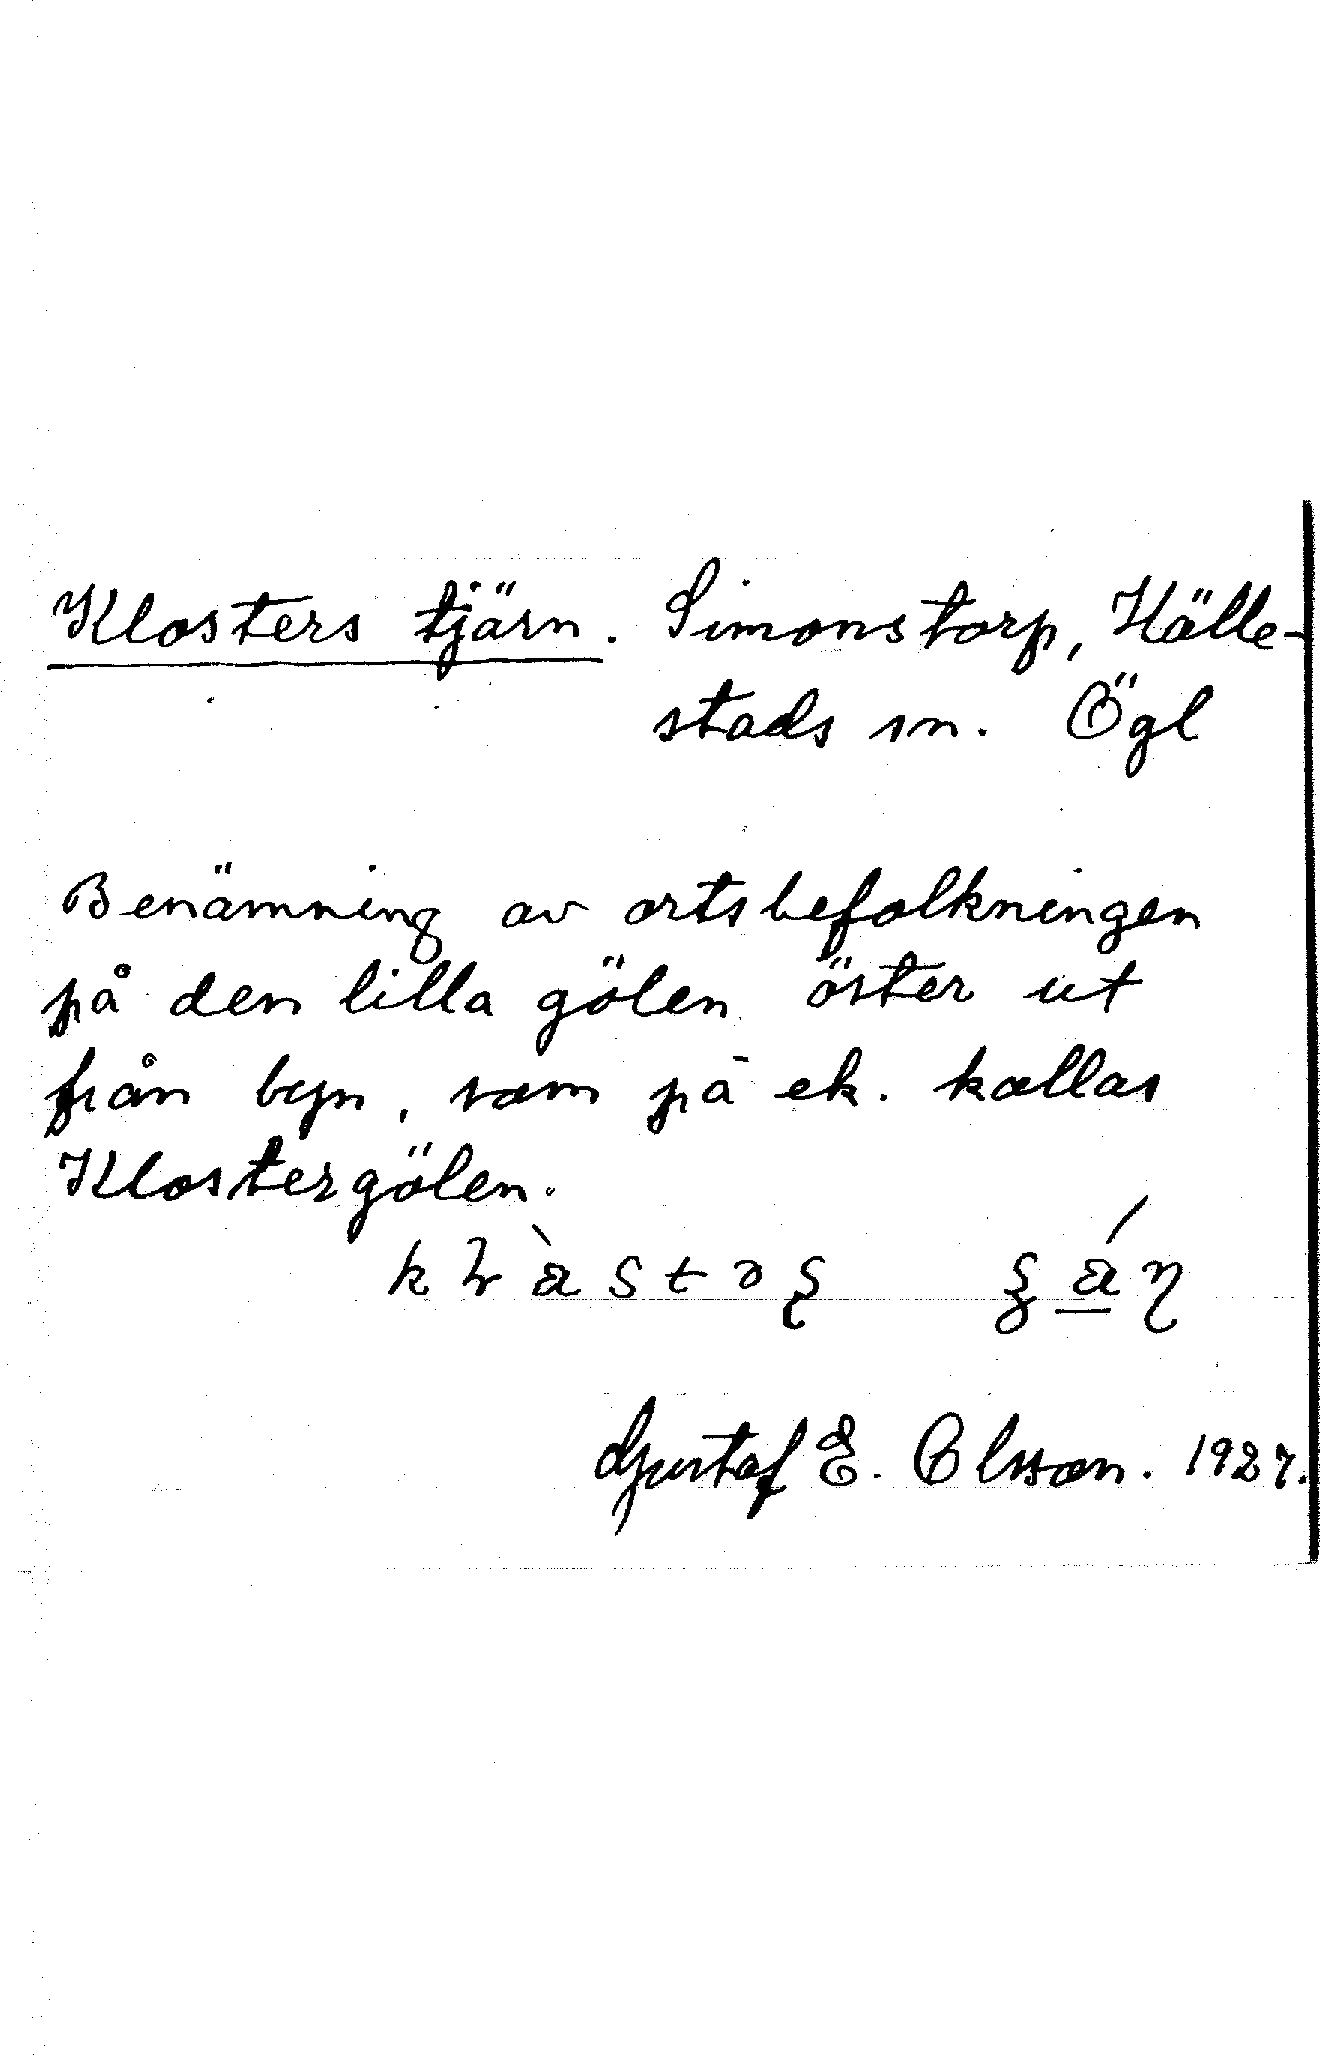 Klosters tjärn. Simonstorp, Hälle-
stads sn. Ögl
Benämning av ortsbefolkningen
på den lilla gölen öster ut
från byn, som på ek. kallas
Klostergölen.
Gustaf E. Olsson. 1927.